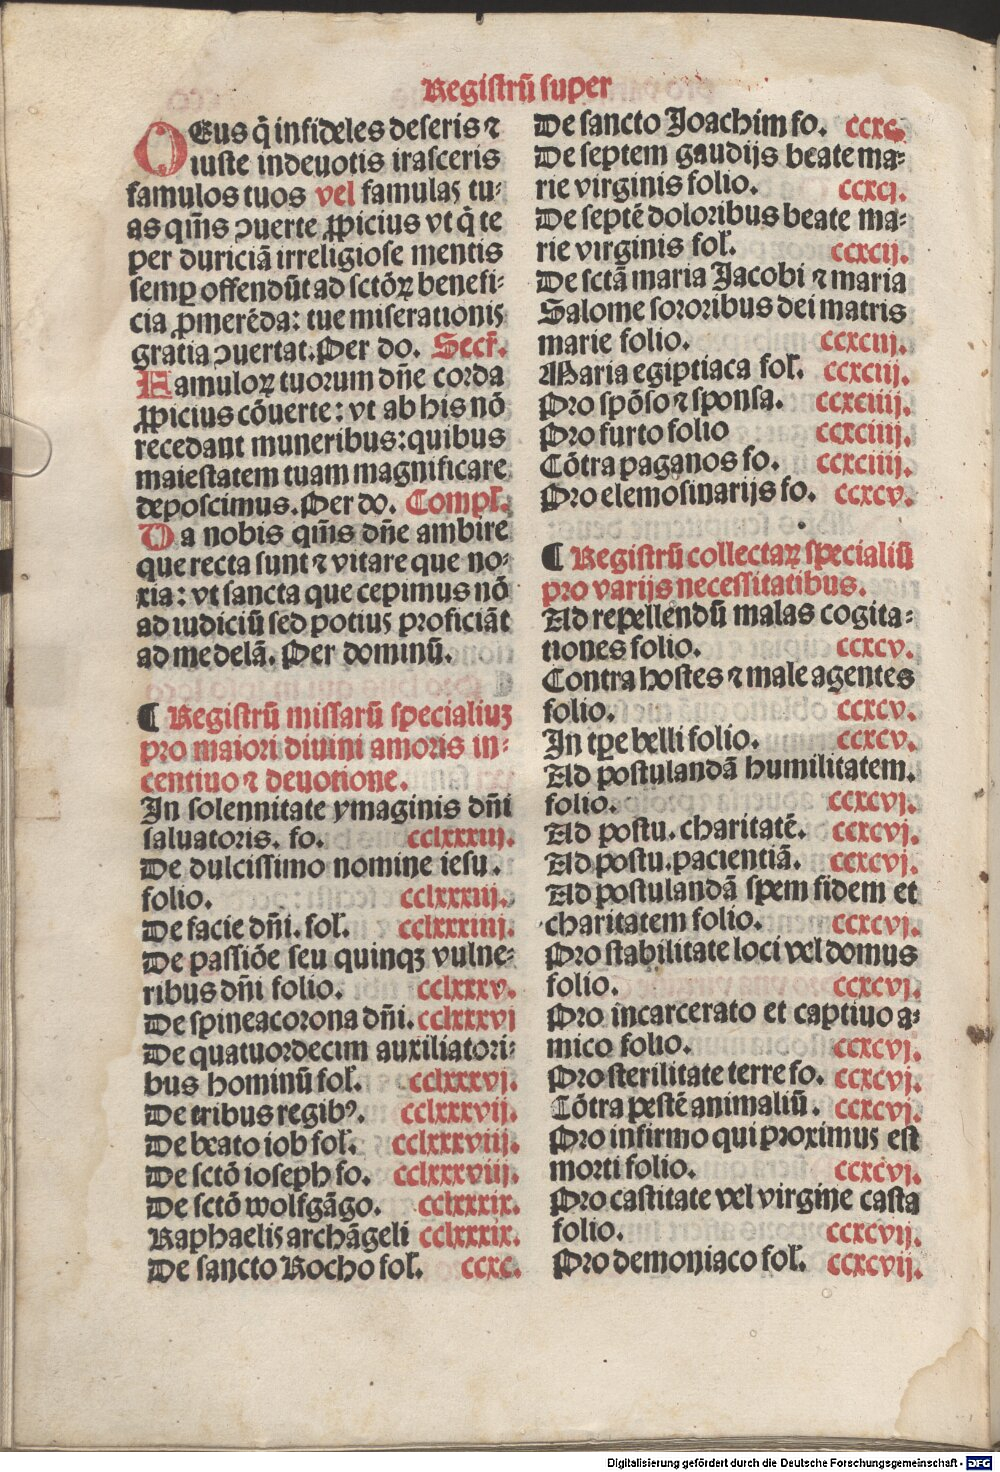 Registrū super
DEus q̄ infideles deseris ⁊
iuste indeuotis irasceris
famulos tuos vel famulas tu-
as qm̄s ↄuerte ꝓpicius vt q̄ te
per duriciā irreligiose mentis
semp offendūt ad sctōꝝ benefi-
cia ꝓmerēda: tue miserationis
gratia ↄuertat. Per do. Secr̄.
Famuloꝝ tuorum dn̄e corda
ꝓpicius cōuerte: vt ab his nō
recedant muneribus: quibus
maiestatem tuam magnificare
deposcimus. Per do. Compl̄.
Da nobis qm̄s dn̄e ambire
que recta sunt ⁊ vitare que no-
xia: vt sancta que cepimus nō
ad iudiciū sed potius proficiāt
ad medelā. Per dominū.
¶ Registrū missarū specialiuꝫ
pro maiori diuini amoris in-
centiuo ⁊ deuotione.
In solennitate ymaginis dn̄i
saluatoris. fo. cclxxxiij.
De dulcissimo nomine iesu.
folio. cclxxxiij.
De facie dn̄i. fol̄. cclxxxiiij.
De passiōe seu quinqꝫ vulne-
ribus dn̄i folio. cclxxxv.
De spineacorona dn̄i. cclxxxvj
De quatuordecim auxiliatori-
bus hominū fol̄. cclxxxvj.
De tribus regibꝰ. cclxxxvij.
De beato iob fol̄. cclxxxviij.
De sctō ioseph fo. cclxxxviij.
De sctō wolfgāgo. cclxxxix.
Raphaelis archāgeli cclxxxix.
De sancto Rocho fol̄. ccxc.
De sancto Joachim fo. ccxc.
De septem gaudijs beate ma-
rie virginis folio. ccxcj.
De septē doloribus beate ma-
rie virginis fol̄. ccxcij.
De sctā maria Jacobi ⁊ maria
Salome sororibus dei matris
marie folio. ccxciij.
Maria egiptiaca fol̄. ccxciij.
Pro spōso ⁊ sponsa. ccxciiij.
Pro furto folio ccxciiij.
Cōtra paganos fo. ccxciiij.
Pro elemosinarijs fo. ccxcv.
¶ Registrū collectaꝝ specialiū
pro varijs necessitatibus.
Ad repellendū malas cogita-
tiones folio. ccxcv.
Contra hostes ⁊ male agentes
folio. ccxcv.
In tꝑe belli folio. ccxcv.
Ad postulandā humilitatem.
folio. ccxcvj.
Ad postu. charitatē. ccxcvj.
Ad postu. pacientiā. ccxcvj.
Ad postulandā spem fidem et
charitatem folio. ccxcvj.
Pro stabilitate loci vel domus
folio. ccxcvj.
Pro incarcerato et captiuo a-
mico folio. ccxcvj.
Pro sterilitate terre fo. ccxcvj.
Cōtra pestē animaliū. ccxcvj.
Pro infirmo qui proximus est
morti folio. ccxcvj.
Pro castitate vel virgine casta
folio. ccxcvij.
Pro demoniaco fol̄. ccxcvij.
Digitalisierung gefördert durch die Deutsche Forschungsgemeinschaft - DFG